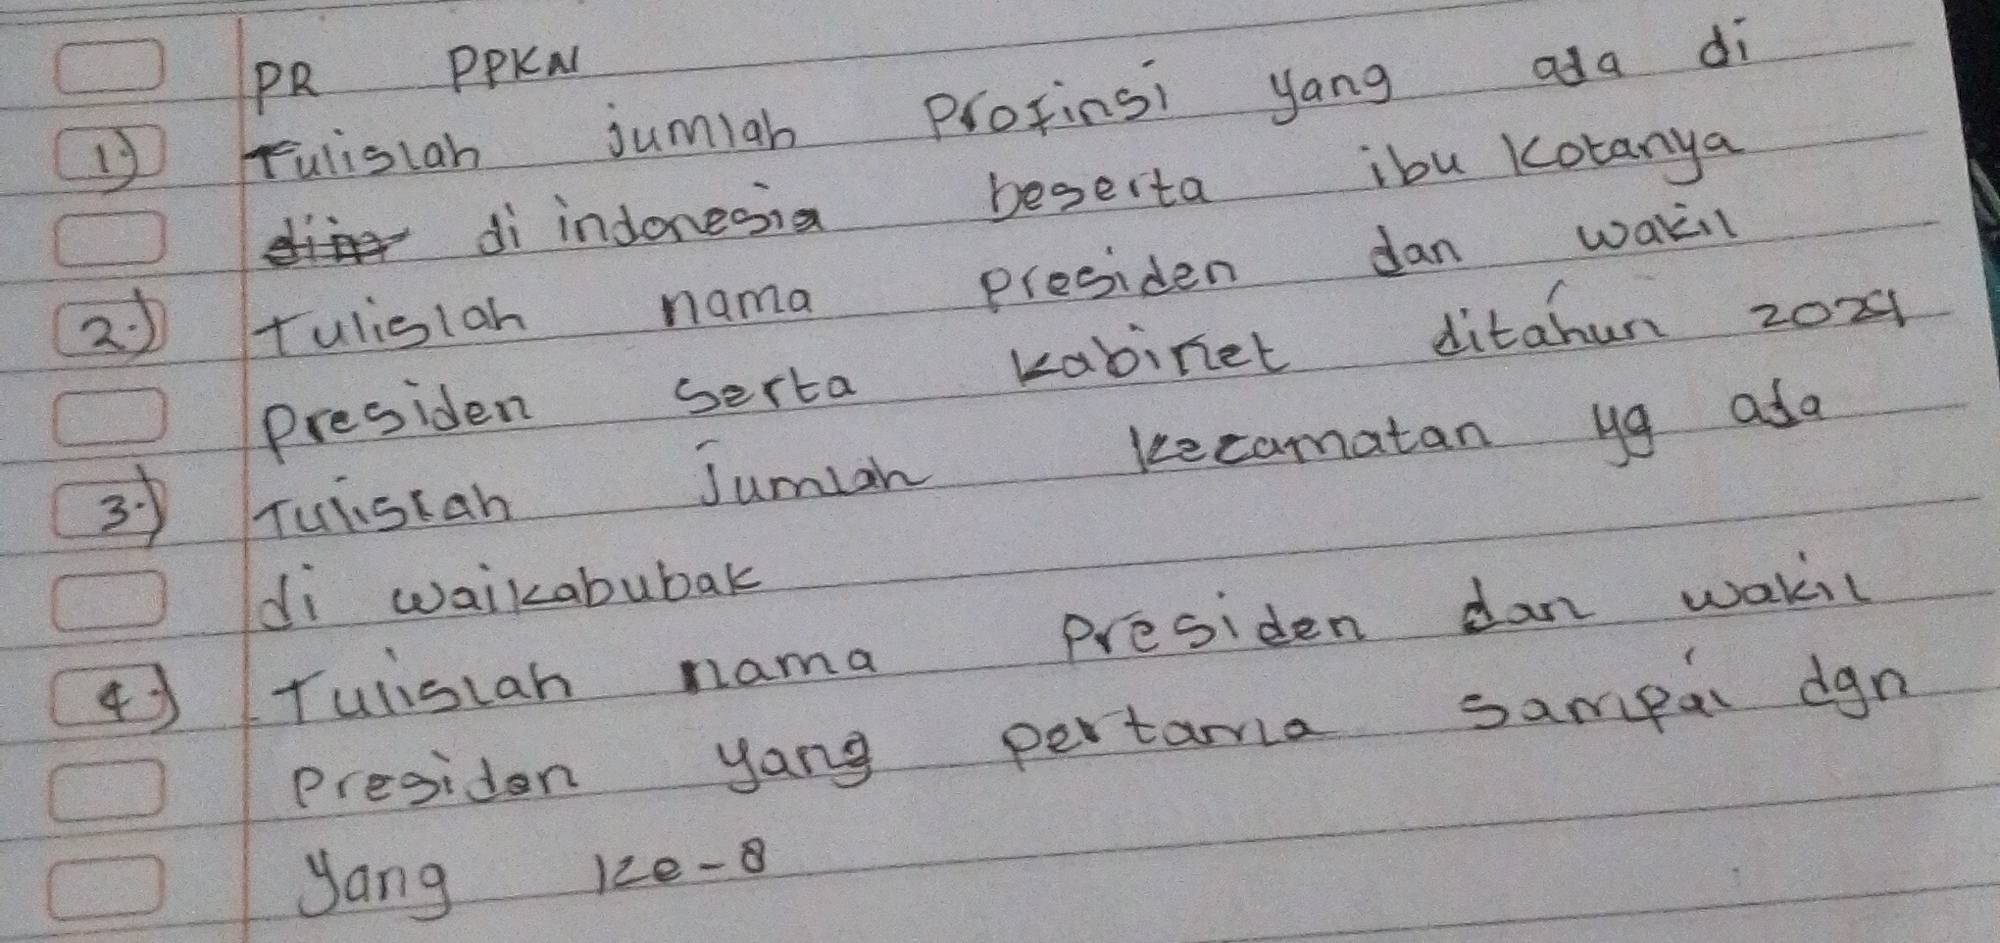 PR PPKN
1.) Tulislah jumlah Profinsi yang ada di
di indonesia beserta ibu kotanya
2.) Tulislah nama presiden dan wakil
presiden serta kabinet ditahun 2024
3.) Tulislah Jumlah kecamatan yg ada
di waikabubak
4.) Tulislah nama presiden dan wakil
presiden yang pertama sampai dgn
yang ke-8